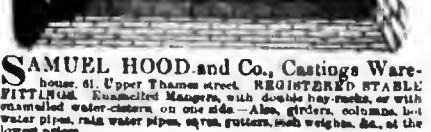 SAMUEL HOOD and Co., Castings Ware-
house, 61, Upper Thames street. REGISTERED STABLE
FITTINGS. Enamelled Mangers, with double hay-racks, or with
enamelled water-cistern on one side.—Also, girders, columns, hot
water pipes, rain water pipes, eaves gutters, sash weights, &c., at the
lowest prices.